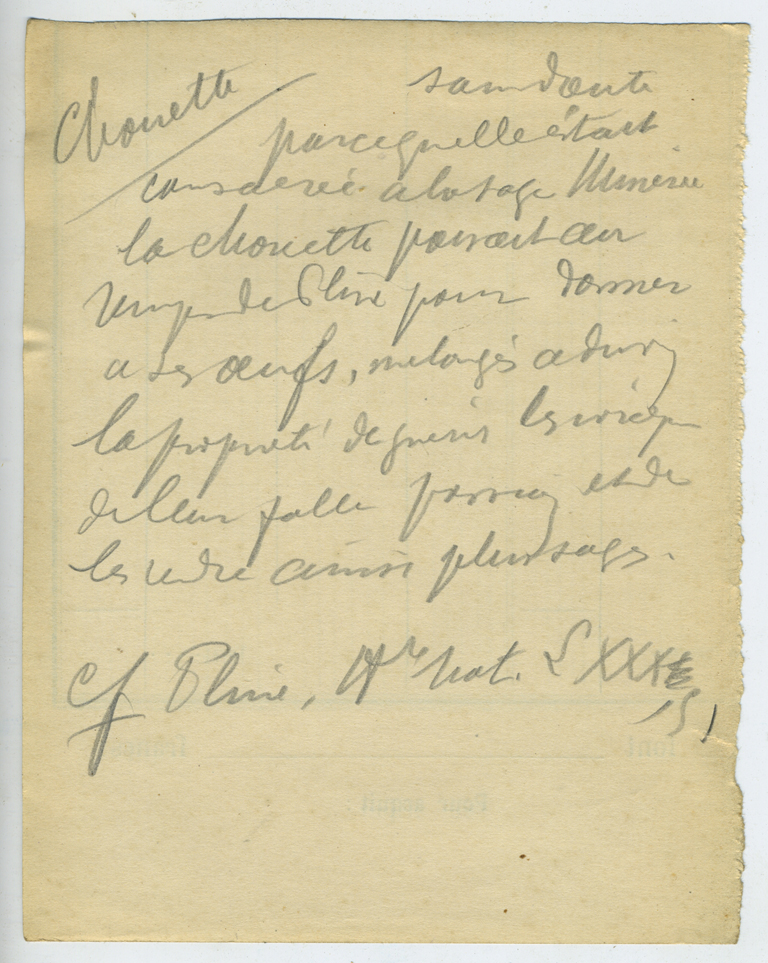 Chouette sans doute
parcequ'elle était
consacrée à la sage Minerve
la chouette passait au
temps de Pline pour donner
a ses œufs, mélangés a du vin
la propriété de guérir les ivrognes
de leur folle passion et de
les rendre ainsi plus sages.
cf Pline, Hre Nat. L XXX
15,